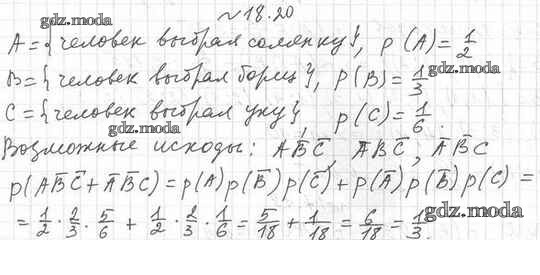 №18.20
gdz.moda
A = { человек выбрал солянку }, p(A) = 1/2
gdz.moda
B = { человек выбрал борщ }, p(B) = 1/3
gdz.moda
C = { человек выбрал уху }, p(C) = 1/6.
gdz.moda
Возможные исходы: AB̅C̅, A̅BC̅; A̅B̅C
gdz.moda
p(AB̅C̅ + A̅B̅C) = p(A)p(B̅)p(C̅) + p(A̅)p(B̅)p(C) =
= 1/2 · 2/3 · 5/6 + 1/2 · 2/3 · 1/6 = 5/18 + 1/18 = 6/18 = 1/3.
gdz.moda